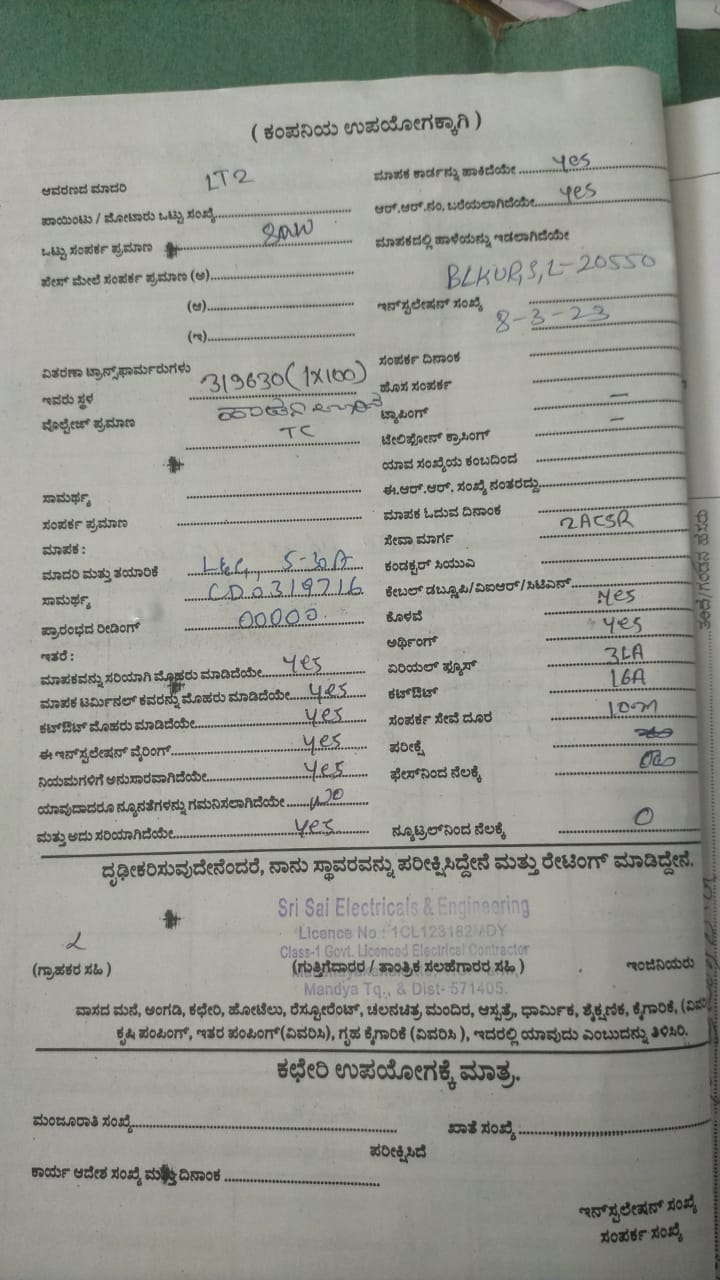 ( ಕಂಪನಿಯ ಉಪಯೋಗಕ್ಕಾಗಿ )
ಆವರಣದ ಮಾದರಿ LT2
ಪಾಯಿಂಟು / ಮೋಟಾರು ಒಟ್ಟು ಸಂಖ್ಯೆ
ಒಟ್ಟು ಸಂಪರ್ಕ ಪ್ರಮಾಣ
ಫೇಸ್ ಮೇಲೆ ಸಂಪರ್ಕ ಪ್ರಮಾಣ (ಅ)
(ಆ)
(ಇ)
ವಿತರಣಾ ಟ್ರಾನ್ಸ್‌ಫಾರ್ಮರುಗಳು
ಇವರು ಸ್ಥಳ 319630 (1X100)
ವೊಲ್ಟೇಜ್ ಪ್ರಮಾಣ
TC
ಸಾಮರ್ಥ್ಯ
ಸಂಪರ್ಕ ಪ್ರಮಾಣ
ಮಾಪಕ :
ಮಾದರಿ ಮತ್ತು ತಯಾರಿಕೆ 5-30A
ಸಾಮರ್ಥ್ಯ CD0319716
ಪ್ರಾರಂಭದ ರೀಡಿಂಗ್ 00000
ಇತರೆ :
ಮಾಪಕವನ್ನು ಸರಿಯಾಗಿ ಮೊಹರು ಮಾಡಿದೆಯೇ yes
ಮಾಪಕ ಟರ್ಮಿನಲ್ ಕವರನ್ನು ಮೊಹರು ಮಾಡಿದೆಯೇ yes
ಕಟ್‌ಔಟ್ ಮೊಹರು ಮಾಡಿದೆಯೇ yes
ಈ ಇನ್‌ಸ್ಟಲೇಷನ್ ವೈರಿಂಗ್ yes
ನಿಯಮಗಳಿಗೆ ಅನುಸಾರವಾಗಿದೆಯೇ yes
ಯಾವುದಾದರೂ ನ್ಯೂನತೆಗಳನ್ನು ಗಮನಿಸಲಾಗಿದೆಯೇ no
ಮತ್ತು ಅದು ಸರಿಯಾಗಿದೆಯೇ yes
ಮಾಪಕ ಕಾರ್ಡನ್ನು ಹಾಕಿದೆಯೇ yes
ಆರ್.ಆರ್.ನಂ. ಬರೆಯಲಾಗಿದೆಯೇ yes
ಮಾಪಕದಲ್ಲಿ ಹಾಳೆಯನ್ನು ಇಡಲಾಗಿದೆಯೇ
BLKUP,S,L-20550
ಇನ್‌ಸ್ಟಲೇಷನ್ ಸಂಖ್ಯೆ
8-3-23
ಸಂಪರ್ಕ ದಿನಾಂಕ
ಹೊಸ ಸಂಪರ್ಕ
ಟ್ಯಾಪಿಂಗ್ —
ಟೇಲಿಫೋನ್ ಕ್ರಾಸಿಂಗ್ —
ಯಾವ ಸಂಖ್ಯೆಯ ಕಂಬದಿಂದ
ಈ.ಆರ್.ಆರ್. ಸಂಖ್ಯೆ ನಂತರದ್ದು
ಮಾಪಕ ಓದುವ ದಿನಾಂಕ
ಸೇವಾ ಮಾರ್ಗ 2ACSR
ಕಂಡಕ್ಟರ್ ಸಿಯುವಿ
ಕೇಬಲ್ ಡಬ್ಲೂಪಿ/ವಿಐಆರ್/ಸಿಟಿಎಸ್
ಕೊಳವೆ yes
ಅರ್ಥಿಂಗ್ yes
ಏರಿಯಲ್ ಫ್ಯೂಸ್
ಕಟ್‌ಔಟ್ 16A
ಸಂಪರ್ಕ ಸೇವೆ ದೂರ 10m
ಪರೀಕ್ಷೆ
ಫೇಸ್‌ನಿಂದ ನೆಲಕ್ಕೆ
ನ್ಯೂಟ್ರಲ್‌ನಿಂದ ನೆಲಕ್ಕೆ 0
ದೃಢೀಕರಿಸುವುದೇನೆಂದರೆ, ನಾನು ಸ್ಥಾವರವನ್ನು ಪರೀಕ್ಷಿಸಿದ್ದೇನೆ ಮತ್ತು ರೇಟಿಂಗ್ ಮಾಡಿದ್ದೇನೆ.
Sri Sai Electricals & Engineering
Licence No : 1CL123182MDY
Class-1 Govt. Licenced Electrical Contractor
(ಗ್ರಾಹಕರ ಸಹಿ) (ಗುತ್ತಿಗೆದಾರರ / ತಾಂತ್ರಿಕ ಸಲಹೆಗಾರರ ಸಹಿ ) ಇಂಜಿನಿಯರು
Mandya Tq., & Dist- 571405.
ವಾಸದ ಮನೆ, ಅಂಗಡಿ, ಕಛೇರಿ, ಹೋಟೆಲು, ರೆಸ್ಟೋರೆಂಟ್, ಚಲನಚಿತ್ರ ಮಂದಿರ, ಆಸ್ಪತ್ರೆ, ಧಾರ್ಮಿಕ, ಶೈಕ್ಷಣಿಕ, ಕೈಗಾರಿಕೆ,
ಕೃಷಿ ಪಂಪಿಂಗ್, ಇತರ ಪಂಪಿಂಗ್(ವಿವರಿಸಿ), ಗೃಹ ಕೈಗಾರಿಕೆ (ವಿವರಿಸಿ ), ಇದರಲ್ಲಿ ಯಾವುದು ಎಂಬುದನ್ನು ತಿಳಿಸಿರಿ.
ಕಛೇರಿ ಉಪಯೋಗಕ್ಕೆ ಮಾತ್ರ.
ಮಂಜೂರಾತಿ ಸಂಖ್ಯೆ ಖಾತೆ ಸಂಖ್ಯೆ
ಪರೀಕ್ಷಿಸಿದೆ
ಕಾರ್ಯ ಆದೇಶ ಸಂಖ್ಯೆ ಮತ್ತು ದಿನಾಂಕ
ಇನ್‌ಸ್ಟಲೇಷನ್ ಸಂಖ್ಯೆ
ಸಂಪರ್ಕ ಸಂಖ್ಯೆ